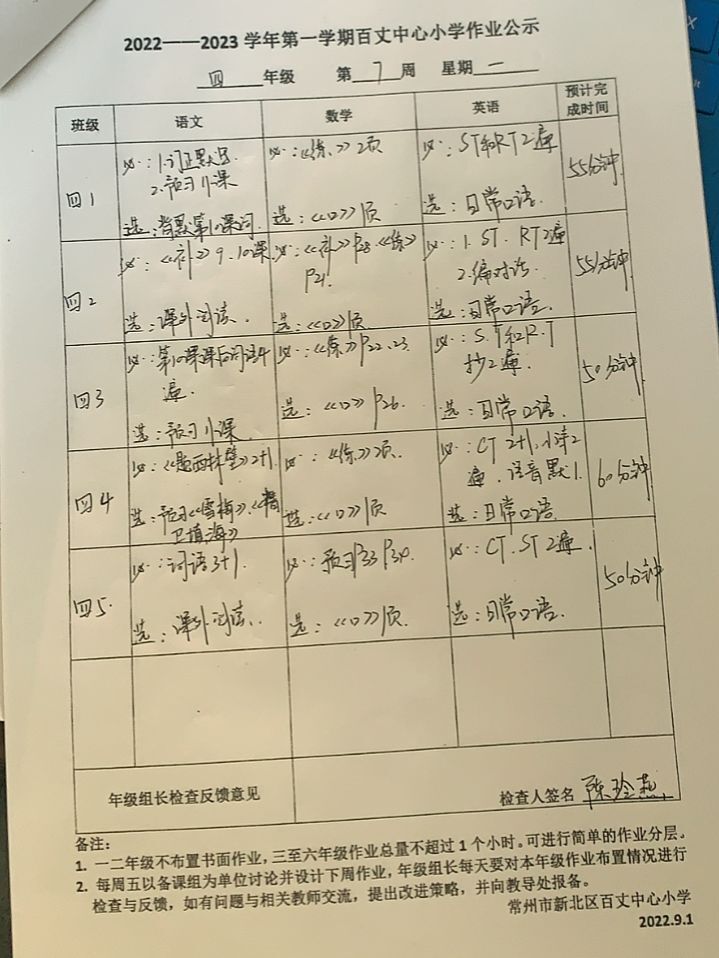 2022——2023 学年第一学期百丈中心小学作业公示
四 年级 第 7 周 星期 一
班级 语文 数学 英语 预计完成时间
四1
必：1.订正默写.
2.预习11课
选：背默第10课词.
必：《练》2页
选：《口》1页
必：ST和RT2遍
选：日常口语.
55分钟
四2
必：《补》9.10课
选：课外阅读.
必：《补》P28.《练》
P21.
选：《口》1页
必：1. ST. RT2遍
2.编对话.
选：日常口语.
55分钟
四3
必：第10课课后词语4
遍.
选：预习11课
必：《练》P22.23
选：《口》P26.
必：S.T和R.T
抄2遍.
选：日常口语.
50分钟
四4
必：《题西林壁》2+1
选：预习《雪梅》.《精
卫填海》
必：《练》2页.
选：《口》1页
必：CT 2+1.小诗2
遍.语音默1.
选：日常口语.
60分钟
四5.
必：词语3+1.
选：课外阅读.
必：预习P33 P34.
选：《口》1页.
必：CT.ST 2遍.
选：日常口语.
50分钟
年级组长检查反馈意见
检查人签名 陈玲燕
备注：
1. 一二年级不布置书面作业，三至六年级作业总量不超过 1 个小时。可进行简单的作业分层。
2. 每周五以备课组为单位讨论并设计下周作业，年级组长每天要对本年级作业布置情况进行
检查与反馈，如有问题与相关教师交流，提出改进策略，并向教导处报备。
常州市新北区百丈中心小学
2022.9.1